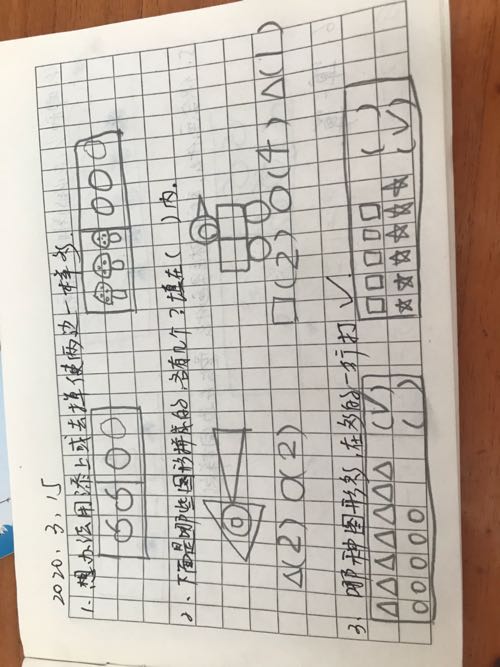 2020.3.15
1.想办法用添上或去掉使两边一样多
2、下面是哪些图形拼成的,各有几个?填在( )内.
△(2) ○(2) □(2) ○(4) △(1)
3、哪种图形多,在多的一行打√.
(√) ( )
( ) (√)